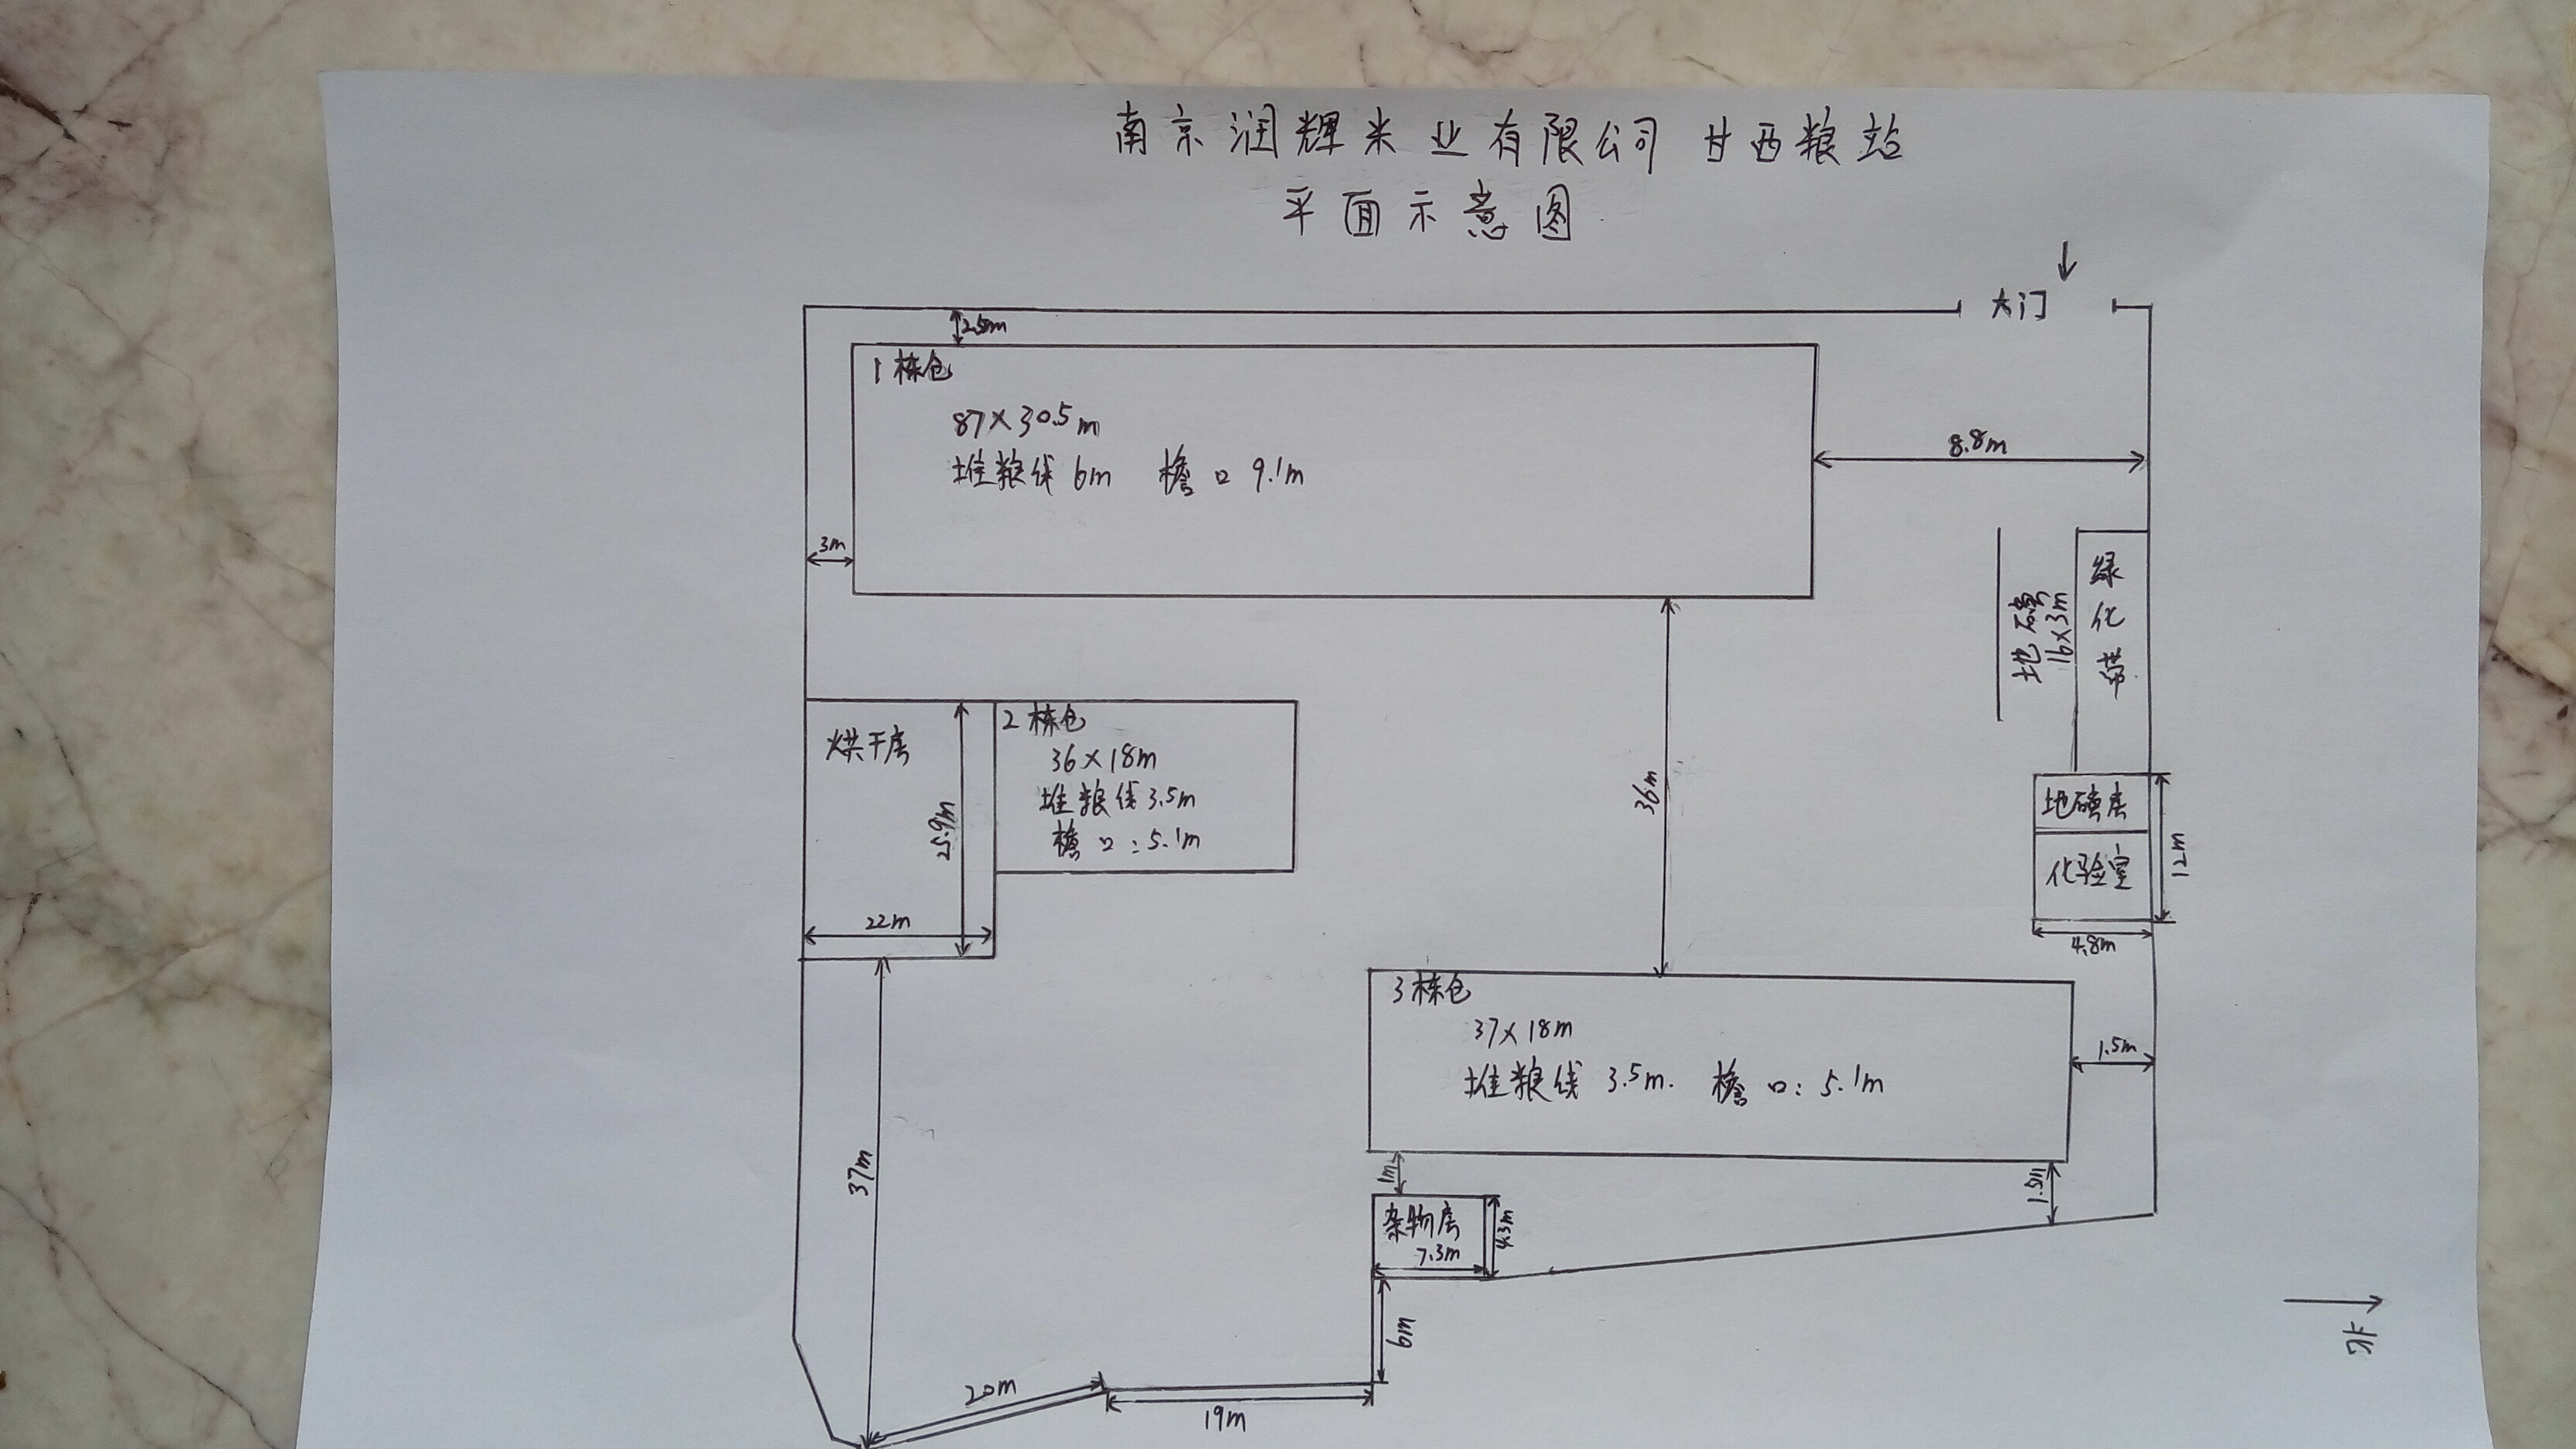 南京润辉米业有限公司 甘西粮站
平面示意图
大门
2.5m
1栋仓
87×30.5m
堆粮线6m 檐口9.1m
8.8m
3m
地磅
16×3m
绿化带
烘干房
25.9m
22m
2栋仓
36×18m
堆粮线3.5m
檐口:5.1m
36m
地磅房
化验室
12m
4.8m
3栋仓
37×18m
堆粮线 3.5m. 檐口:5.1m
1.5m
37m
1m
1.5m
杂物房
7.3m
4.3m
6m
20m
19m
北